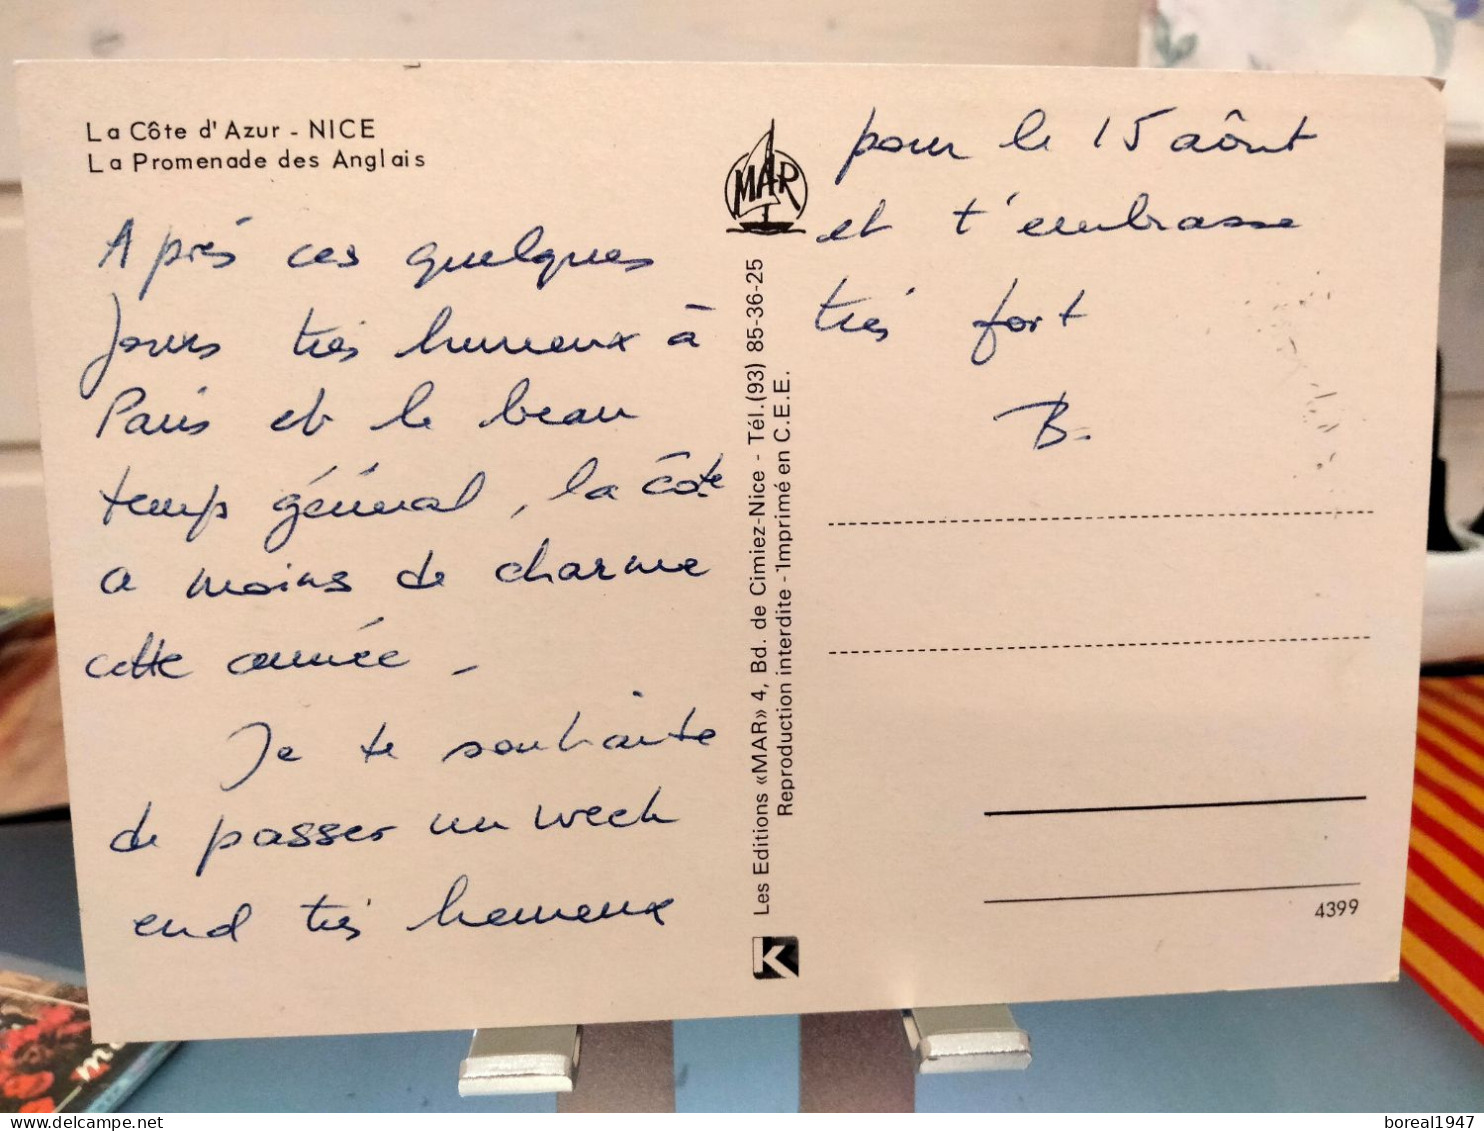 La Côte d'Azur - NICE
La Promenade des Anglais
Après ces quelques
jours très heureux à
Paris et le beau
temps général, la côte
a moins de charme
cette année -
Je te souhaite
de passer un week
end très heureux
MAR
Les Editions «MAR» 4, Bd. de Cimiez-Nice - Tél.(93) 85-36-25
Reproduction interdite - Imprimé en C.E.E.
K
pour le 15 aôut
et t'embrasse
très fort
B.
4399
boreal1947